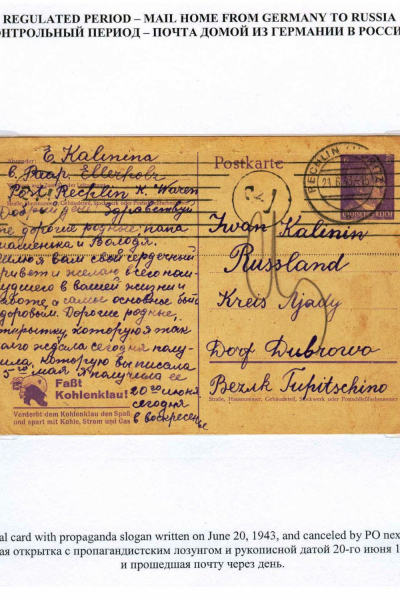 REGULATED PERIOD – MAIL HOME FROM GERMANY TO RUSSIA
ОНТРОЛЬНЫЙ ПЕРИОД – ПОЧТА ДОМОЙ ИЗ ГЕРМАНИИ В РОССИ
E. Kalinina
Postkarte
RECHLIN
Post Rechlin K. Waren
Добрый день Здравствуй
те дорогие родные папа
мамочка и Володя.
шлю я вам свой сердечный
привет и желаю всего наи
лучшего в вашей жизни и
работе, а самы основное быть
здоровым. Дорогие родные,
открытку, которую я так
долго ждала сегодня полу
чила, которую вы писала
5го мая я получила ее
20го июня
сегодня
в воскресенье
Iwan Kalinin
Russland
Kreis Ljady
Dorf Dubrowo
Bezirk Tupitschino
Straße, Hausnummer, Gebäudeteil, Stockwerk oder Postschließfachnummer
Faßt
Kohlenklau!
Verderbt dem Kohlenklau den Spaß
und spart mit Kohle, Strom und Gas
al card with propaganda slogan written on June 20, 1943, and canceled by PO nex
ая открытка с пропагандистским лозунгом и рукописной датой 20-го июня 1
и прошедшая почту через день.